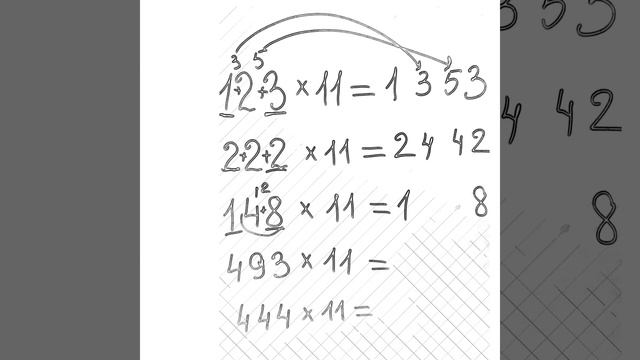 3 5
1+2+3 × 11 = 1 3 5 3
2+2+2 × 11 = 2 4 4 2
12
14+8 × 11 = 1 8
493 × 11 =
444 × 11 =